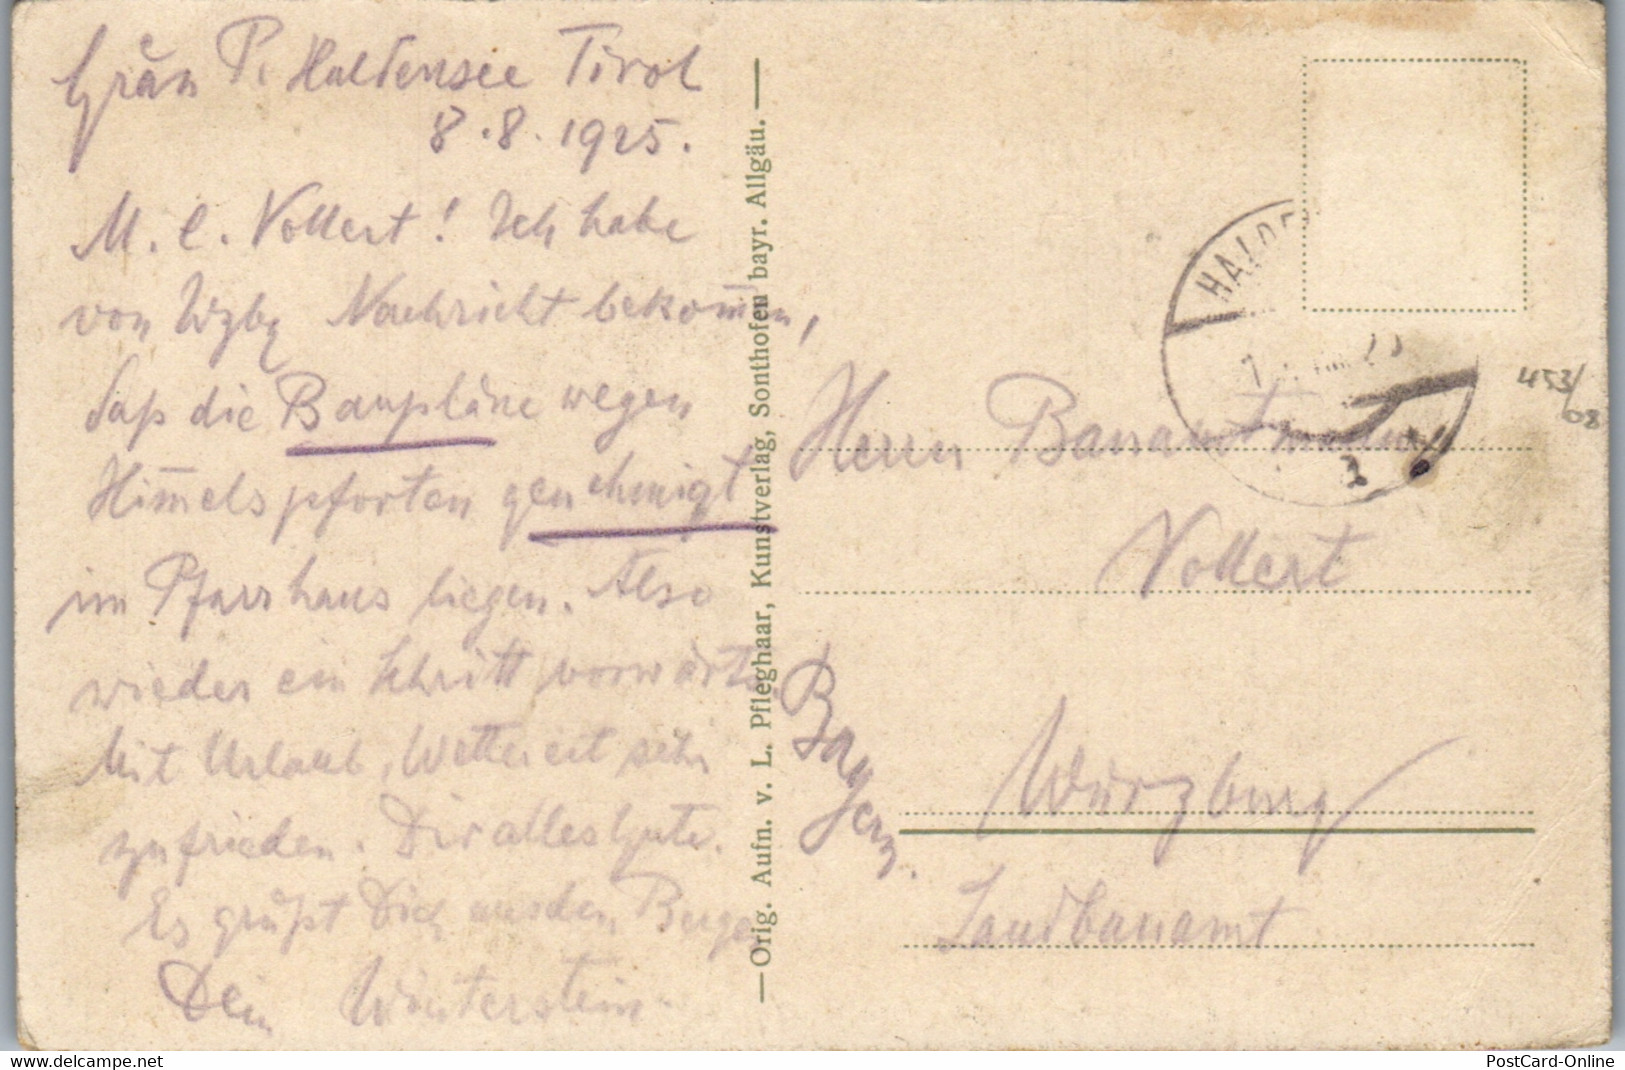 Grän P. Haldensee Tirol
8.8.1925.
M. l. Vollert! Ich habe
von Wzbg Nachricht bekom̄en,
daß die Baupläne wegen
Him̄elspforten genehmigt
im Pfarrhaus liegen. Also
wieder ein Schritt vorwärts.
Mit Urlaub, Wetter seit sehr
zufrieden. Dir alles Gute.
Es grüßt Dich aus den Bergen
Dein Winterstein.
—Orig. Aufn. v. L. Pfleghaar, Kunstverlag, Sonthofen bayr. Allgäu.—
HALDE
453/
08
Herrn Bauamtmann
Vollert
Würzburg
Bayern.
Landbauamt
delcampe.net
PostCard-Online